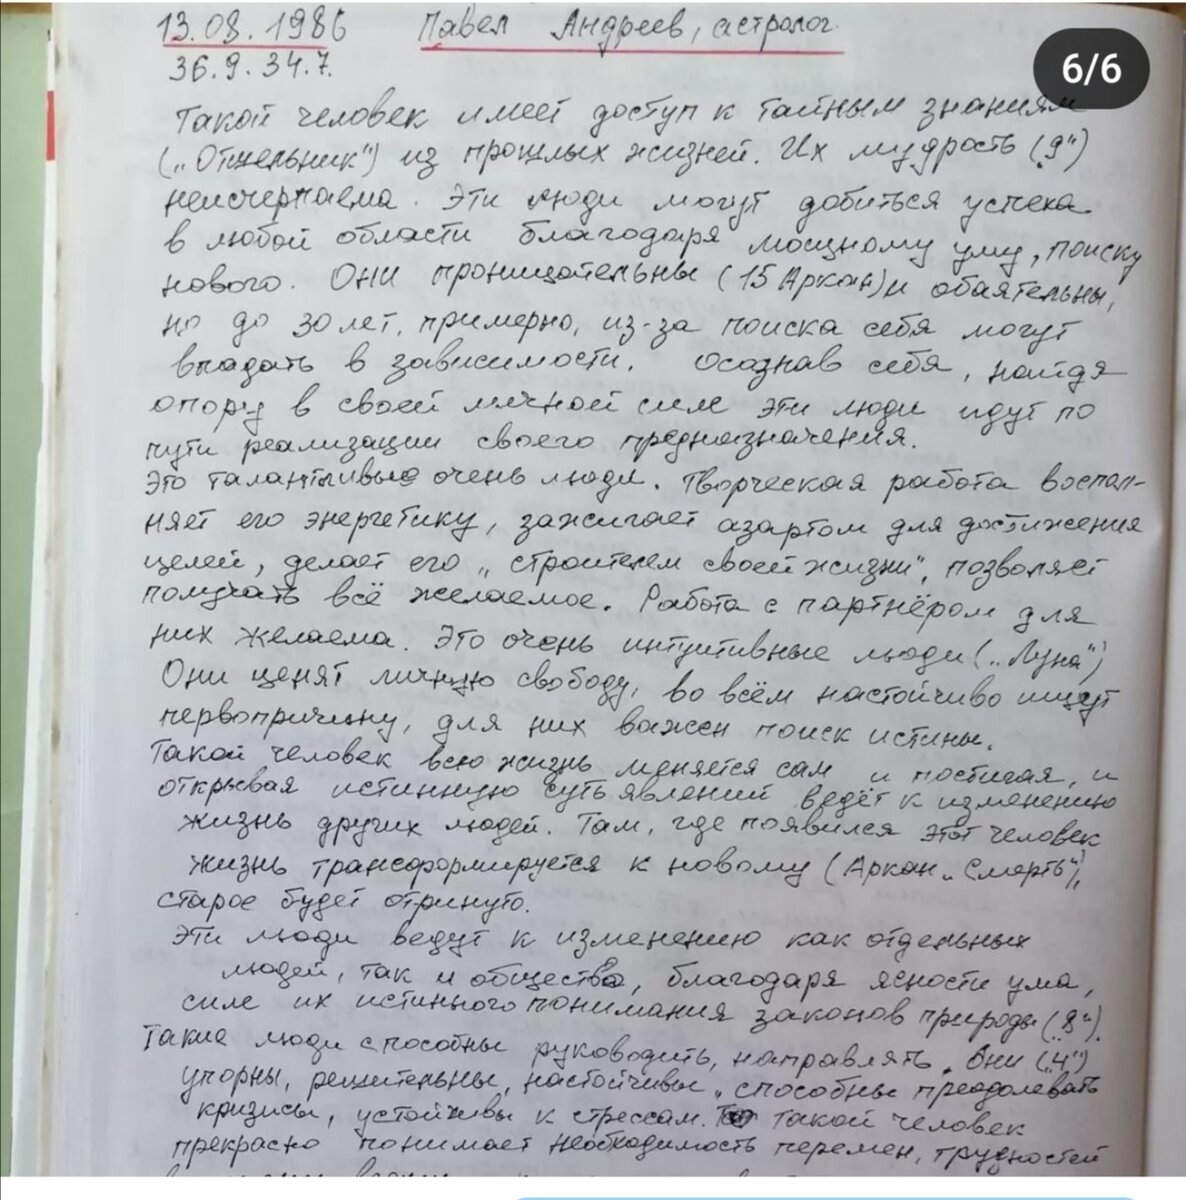 13.08.1986 Павел Андреев, астролог.
6/6
36.9.34.7.
Такой человек имеет доступ к тайным знаниям
(„Отшельник“) из прошлых жизней. Их мудрость („9“)
неисчерпаема. Эти люди могут добиться успеха
в любой области благодаря мощному уму, поиску
нового. Они проницательны (15 Аркан) и обаятельны,
но до 30 лет, примерно, из-за поиска себя могут
впадать в зависимости. Осознав себя, найдя
опору в своей личной силе эти люди идут по
пути реализации своего предназначения.
Это талантливые очень люди. Творческая работа воспол-
няет его энергетику, зажигает азартом для достижения
целей, делает его „строителем своей жизни“, позволяет
получать всё желаемое. Работа с партнёром для
них желаема. Это очень интуитивные люди („Луна“)
Они ценят личную свободу, во всём настойчиво ищут
первопричину, для них важен поиск истины.
Такой человек всю жизнь меняется сам и постигая, и
открывая истинную суть явлений ведёт к изменению
жизнь других людей. Там, где появился этот человек
жизнь трансформируется к новому (Аркан „Смерть“),
старое будет отринуто.
Эти люди ведут к изменению как отдельных
людей, так и общества, благодаря ясности ума,
силе их истинного понимания законов природы („8“).
Такие люди способны руководить, направлять. Они („4“)
упорны, решительны, настойчивы, способны преодолевать
кризисы, устойчивы к стрессам. Такой человек
прекрасно понимает необходимость перемен, трудностей